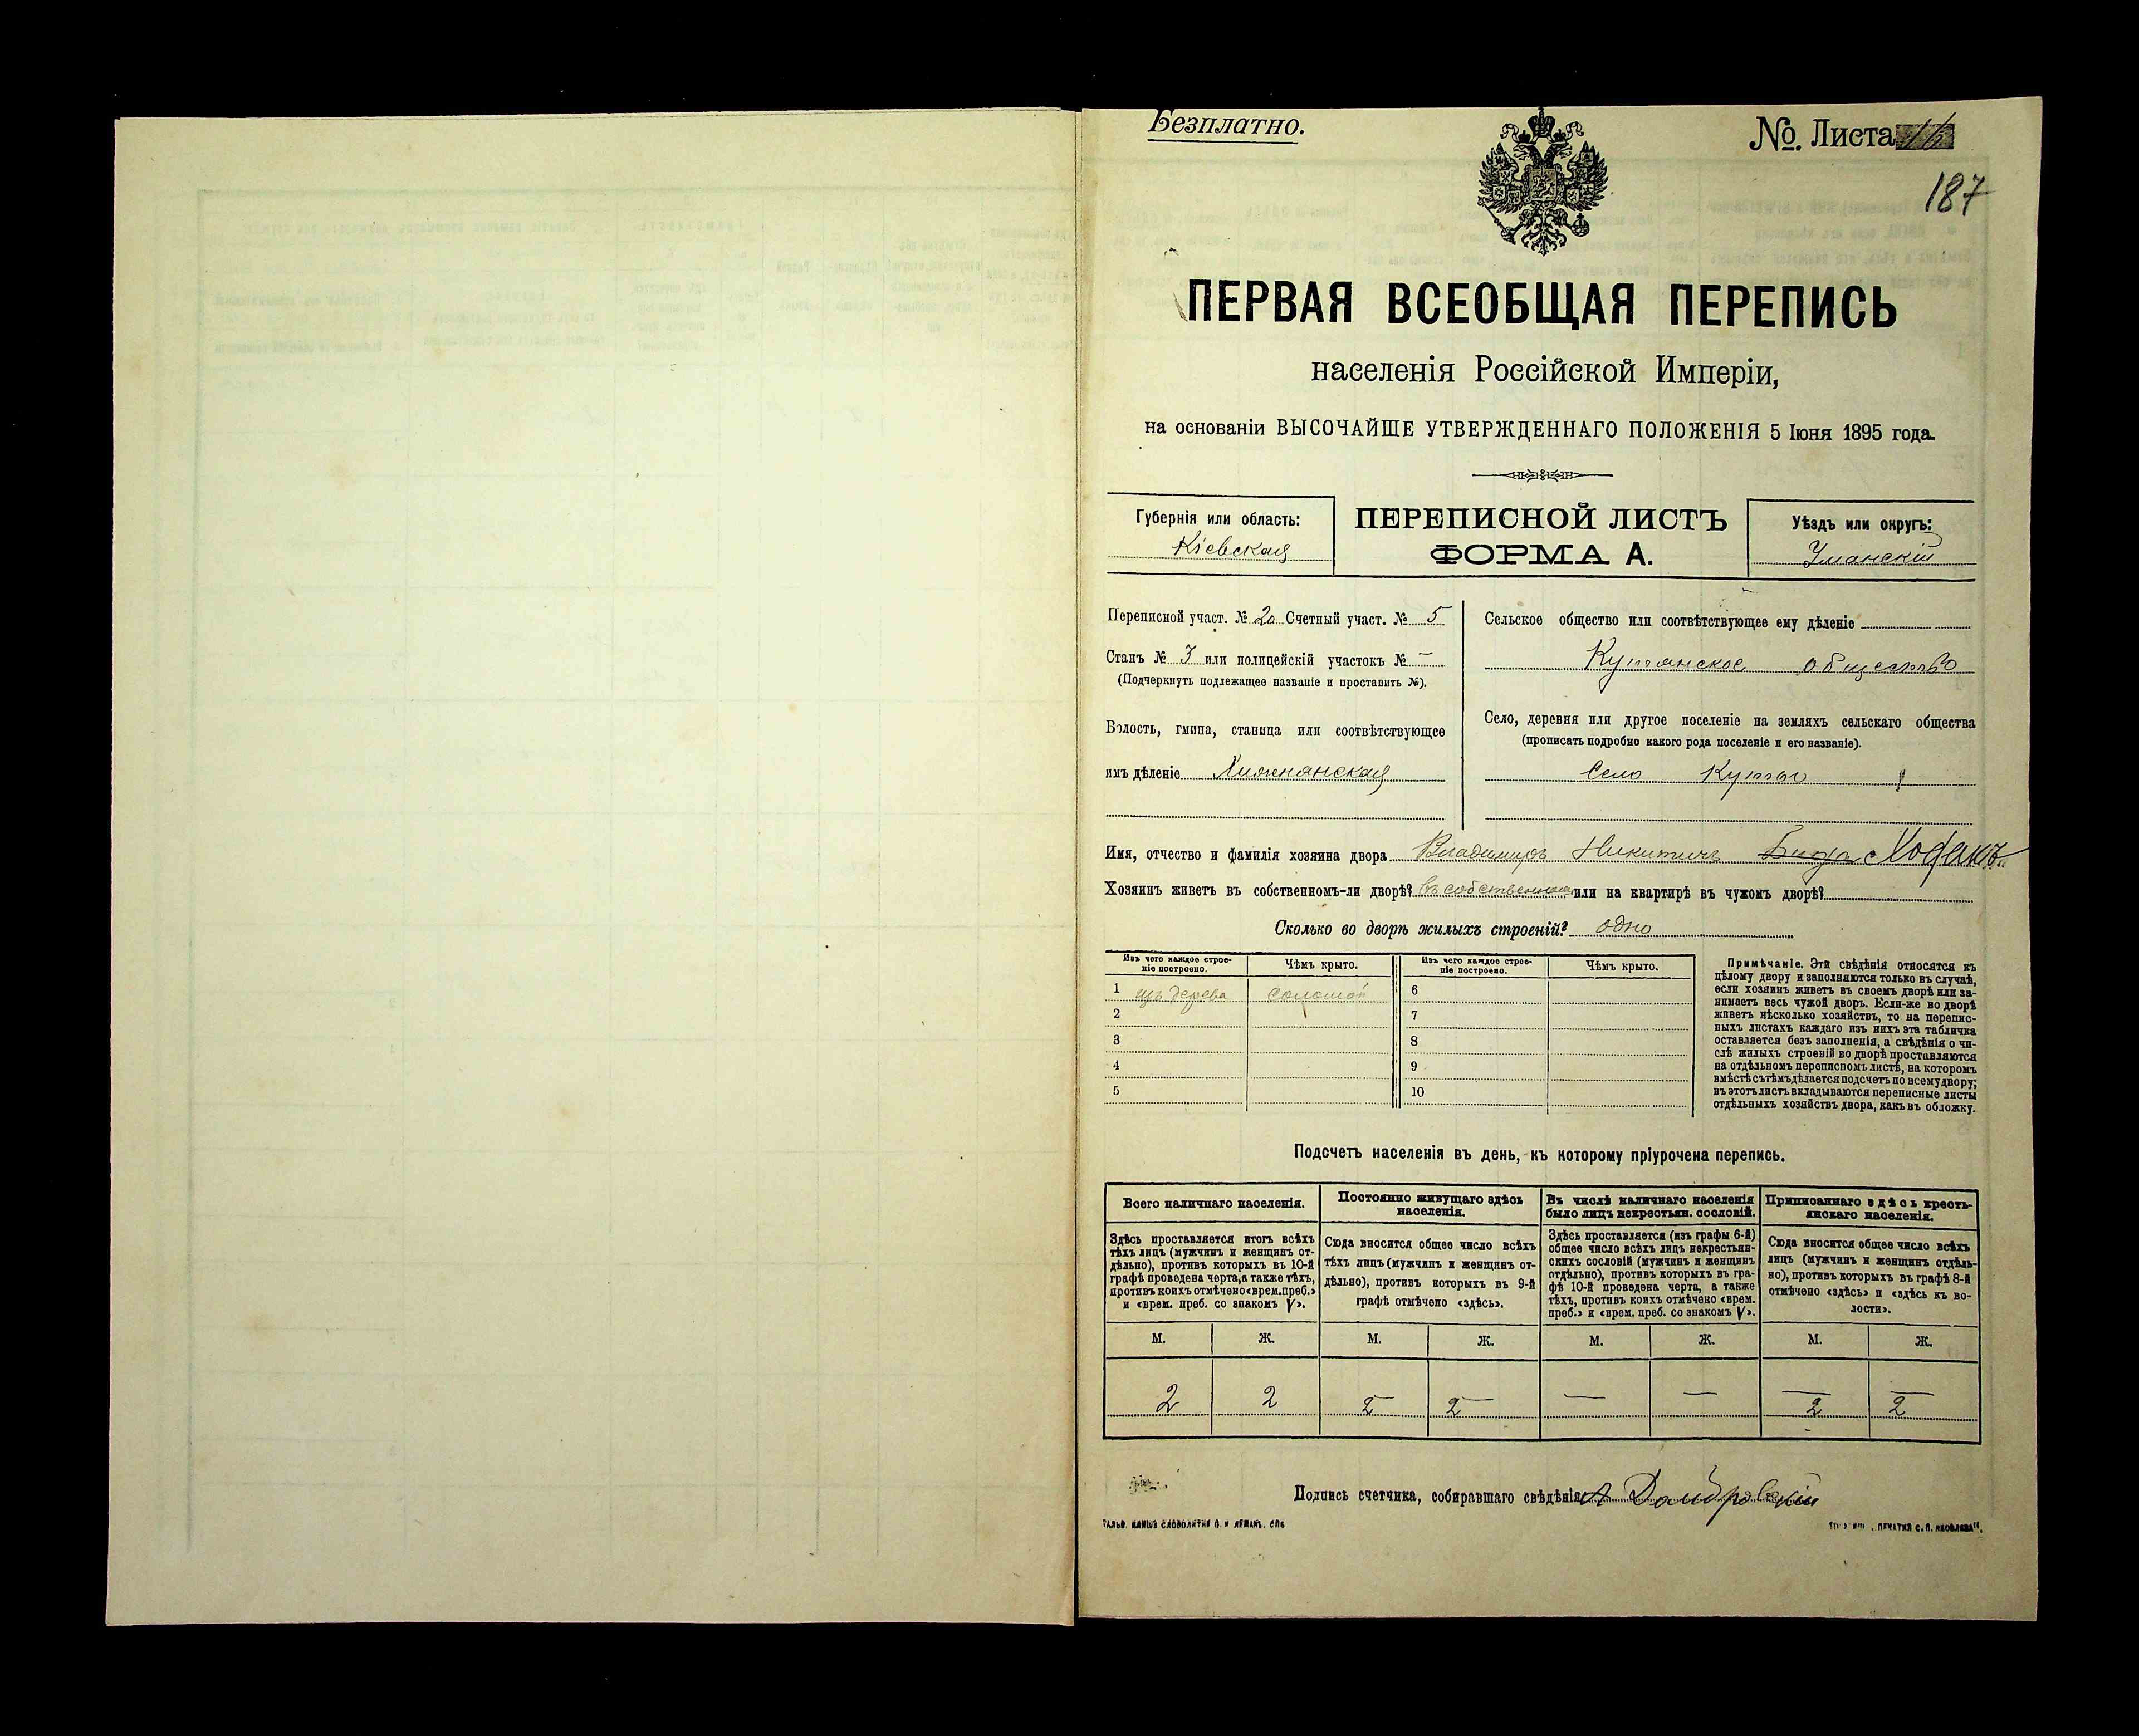 Безплатно.
№. Листа 16
187
ПЕРВАЯ ВСЕОБЩАЯ ПЕРЕПИСЬ
населенія Россійской Имперіи,
на основаніи ВЫСОЧАЙШЕ УТВЕРЖДЕННАГО ПОЛОЖЕНІЯ 5 Іюня 1895 года.
Губернія или область:
Кіевская
ПЕРЕПИСНОЙ ЛИСТЪ
ФОРМА А.
Уѣздъ или округъ:
Уманскій
Переписной участ. № 20 Счетный участ. № 5
Станъ № 3 или полицейскій участокъ № —
(Подчеркнуть подлежащее названіе и проставить №).
Волость, гмина, станица или соотвѣтствующее
имъ дѣленіе Хижнянская
Сельское общество или соотвѣтствующее ему дѣленіе
Кутянское общество
Село, деревня или другое поселеніе на земляхъ сельскаго общества
(прописать подробно какого рода поселеніе и его названіе).
Село Куты
Имя, отчество и фамилія хозяина двора Владимиръ Никитичъ
Хозяинъ живетъ въ собственномъ-ли дворѣ? въ собственномъ или на квартирѣ въ чужомъ дворѣ?
Сколько во дворѣ жилыхъ строеній? одно
Изъ чего каждое строе-
ніе построено.
Чѣмъ крыто.
Изъ чего каждое строе-
ніе построено.
Чѣмъ крыто.
1 изъ дерева соломой 6
2 7
3 8
4 9
5 10
Примѣчаніе. Эти свѣдѣнія относятся къ
цѣлому двору и заполняются только въ случаѣ,
если хозяинъ живетъ въ своемъ дворѣ или за-
нимаетъ весь чужой дворъ. Если-же во дворѣ
живетъ нѣсколько хозяйствъ, то на перепис-
ныхъ листахъ каждаго изъ нихъ эта табличка
оставляется безъ заполненія, а свѣдѣнія о чи-
слѣ жилыхъ строеній во дворѣ проставляются
на отдѣльномъ переписномъ листѣ, на которомъ
вмѣстѣ съ тѣмъ дѣлается подсчетъ по всему двору;
въ этотъ листъ вкладываются переписные листы
отдѣльныхъ хозяйствъ двора, какъ въ обложку.
Подсчетъ населенія въ день, къ которому пріурочена перепись.
Всего наличнаго населенія.
Здѣсь проставляется итогъ всѣхъ
тѣхъ лицъ (мужчинъ и женщинъ от-
дѣльно), противъ которыхъ въ 10-й
графѣ проведена черта, а также тѣхъ,
противъ коихъ отмѣчено «врем. преб.»
и «врем. преб. со знакомъ V».
Постоянно живущаго здѣсь
населенія.
Сюда вносится общее число всѣхъ
тѣхъ лицъ (мужчинъ и женщинъ от-
дѣльно), противъ которыхъ въ 9-й
графѣ отмѣчено «здѣсь».
Въ числѣ наличнаго населенія
было лицъ некрестьян. сословій.
Здѣсь проставляется (изъ графы 6-й)
общее число всѣхъ лицъ некрестьян-
скихъ сословій (мужчинъ и женщинъ
отдѣльно), противъ которыхъ въ гра-
фѣ 10-й проведена черта, а также
тѣхъ, противъ коихъ отмѣчено «врем.
преб.» и «врем. преб. со знакомъ V».
Приписаннаго здѣсь кресть-
янскаго населенія.
Сюда вносится общее число всѣхъ
лицъ (мужчинъ и женщинъ отдѣль-
но), противъ которыхъ въ графѣ 8-й
отмѣчено «здѣсь» и «здѣсь къ во-
лости».
М. Ж. М. Ж. М. Ж. М. Ж.
2 2 2 2 — — 2 2
Подпись счетчика, собиравшаго свѣдѣнія